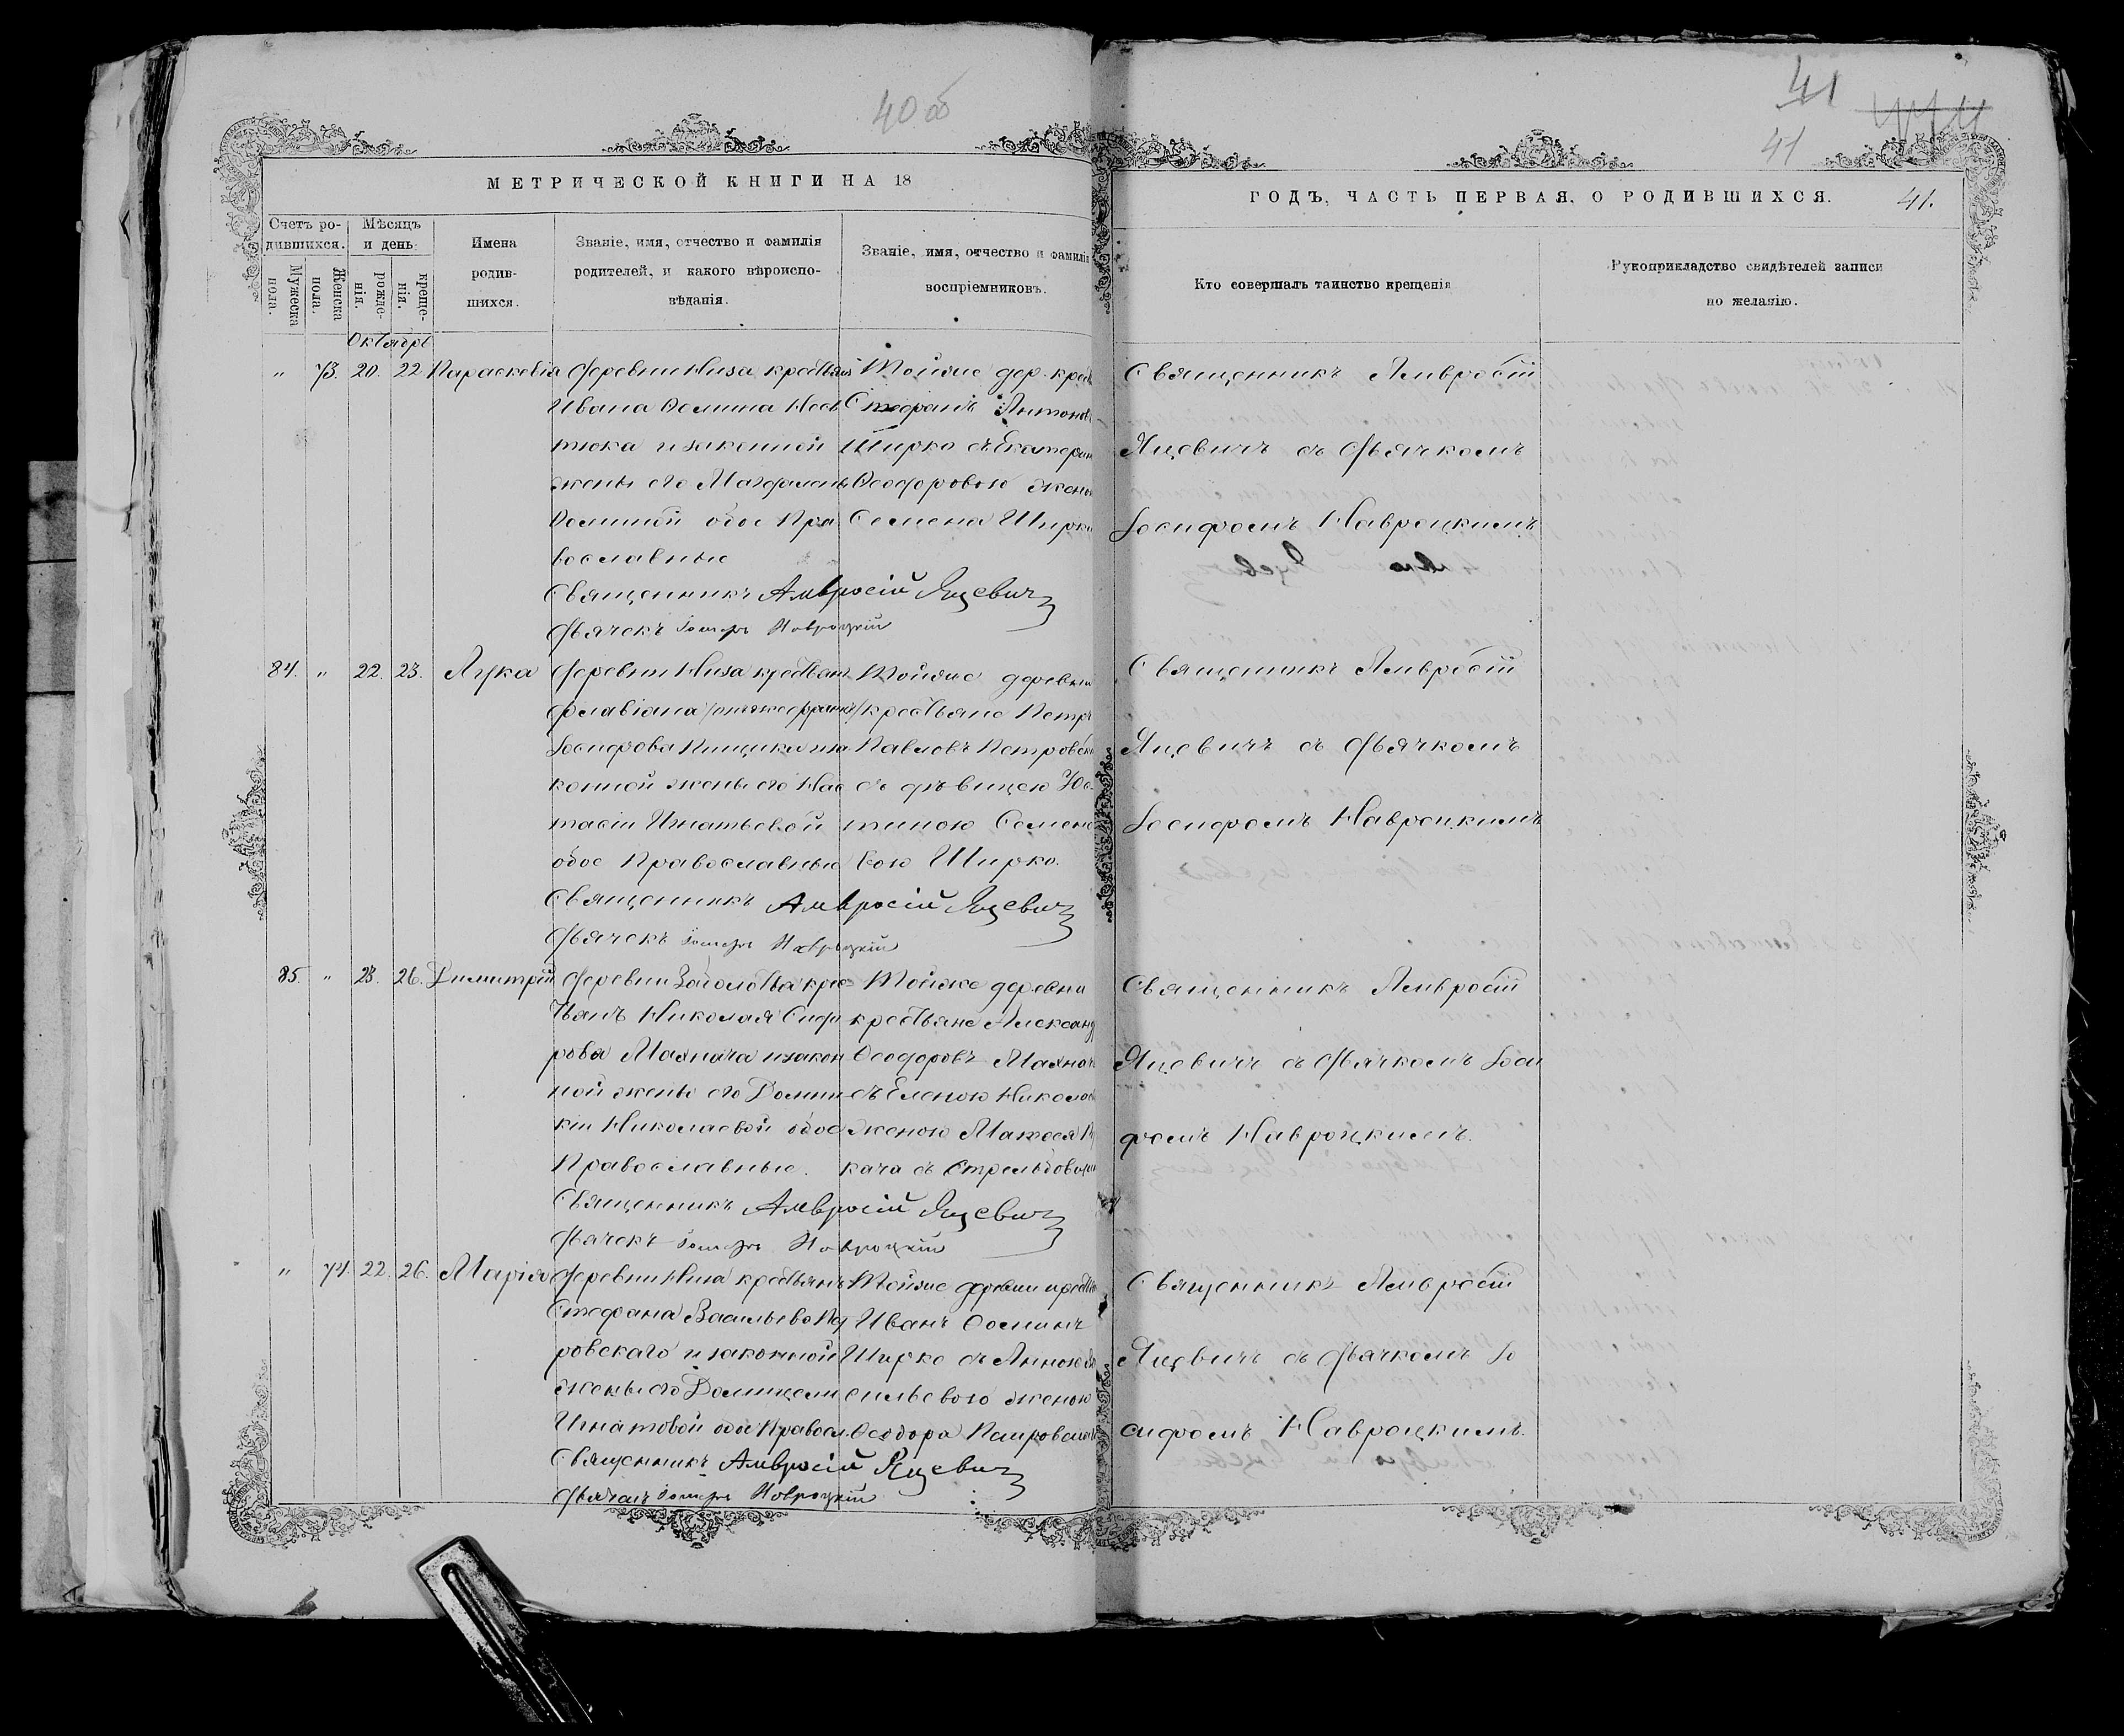 40 об
41
41
41.
МЕТРИЧЕСКОЙ КНИГИ НА 18
ГОДЪ, ЧАСТЬ ПЕРВАЯ, О РОДИВШИХСЯ.
Счетъ ро-
дившихся.
Мужеска
пола.
Женска
пола.
Мѣсяцъ
и день
рожде-
нія.
креще-
нія.
Имена
родив-
шихся.
Званіе, имя, отчество и фамилія
родителей, и какого вѣроиспо-
вѣданія.
Званіе, имя, отчество и фамилія
воспріемниковъ.
Кто совершалъ таинство крещенія
Рукоприкладство свидѣтелей записи
по желанію.
Октябрь
„ 73. 20. 22 Параскевія
Деревни Низа крестьян
Ивана Фомина
тюка и законной
жены его Магдалены
Фоминой обое Пра
вославные
Священникъ Амвросій Яцевич
Дьячекъ Іосифъ Навроцкій
Тойже дер. крест
Стефанъ Антонов
Ширко съ Екатерин
Феодоровою женою
Семена Ширко
Священникъ Амвросій
Яцевичъ съ Дьячкомъ
Іосифомъ Навроцкимъ
84. „ 22. 23. Лука
Деревни Низа крестьян
Флавіана
Іосифова и за
конной жены его Нас
тасіи Игнатьевой
обое Православные
Священникъ Амвросій Яцевич
Дьячекъ Іосифъ Навроцкій
Тойже деревни
крестьяне Петръ
Павловъ Петровск
съ дѣвицею Юс
тиною Семено
вою Ширко.
Священникъ Амвросій
Яцевичъ съ Дьячкомъ
Іосифомъ Навроцкимъ
85. „ 23. 26. Димитрій
Деревни Заболотья крес
тьянъ Николая
рова Махнача и закон
ной жены его Домни
кіи Николаевой обое
Православные.
Священникъ Амвросій Яцевич
Дьячекъ Іосифъ Навроцкій
Тойже деревни
крестьяне Александ
Феодоровъ Махнач
съ Еленою Николае
женою Матвея
кача съ
Священникъ Амвросій
Яцевичъ съ Дьячкомъ Іоси
фомъ Навроцкимъ.
„ 74. 22. 26. Марія
Деревни Низа крестьянъ
Стефана Васильева
ровскаго и законной
жены его Домицели
Игнатовой обое Правосл.
Священникъ Амвросій Яцевич
Дьячекъ Іосифъ Навроцкій
Тойже деревни крестья
Иванъ Фоминъ
Ширко съ Анною Ва
сильевою женою
Феодора
Священникъ Амвросій
Яцевичъ съ Дьячкомъ Іо
сифомъ Навроцкимъ.